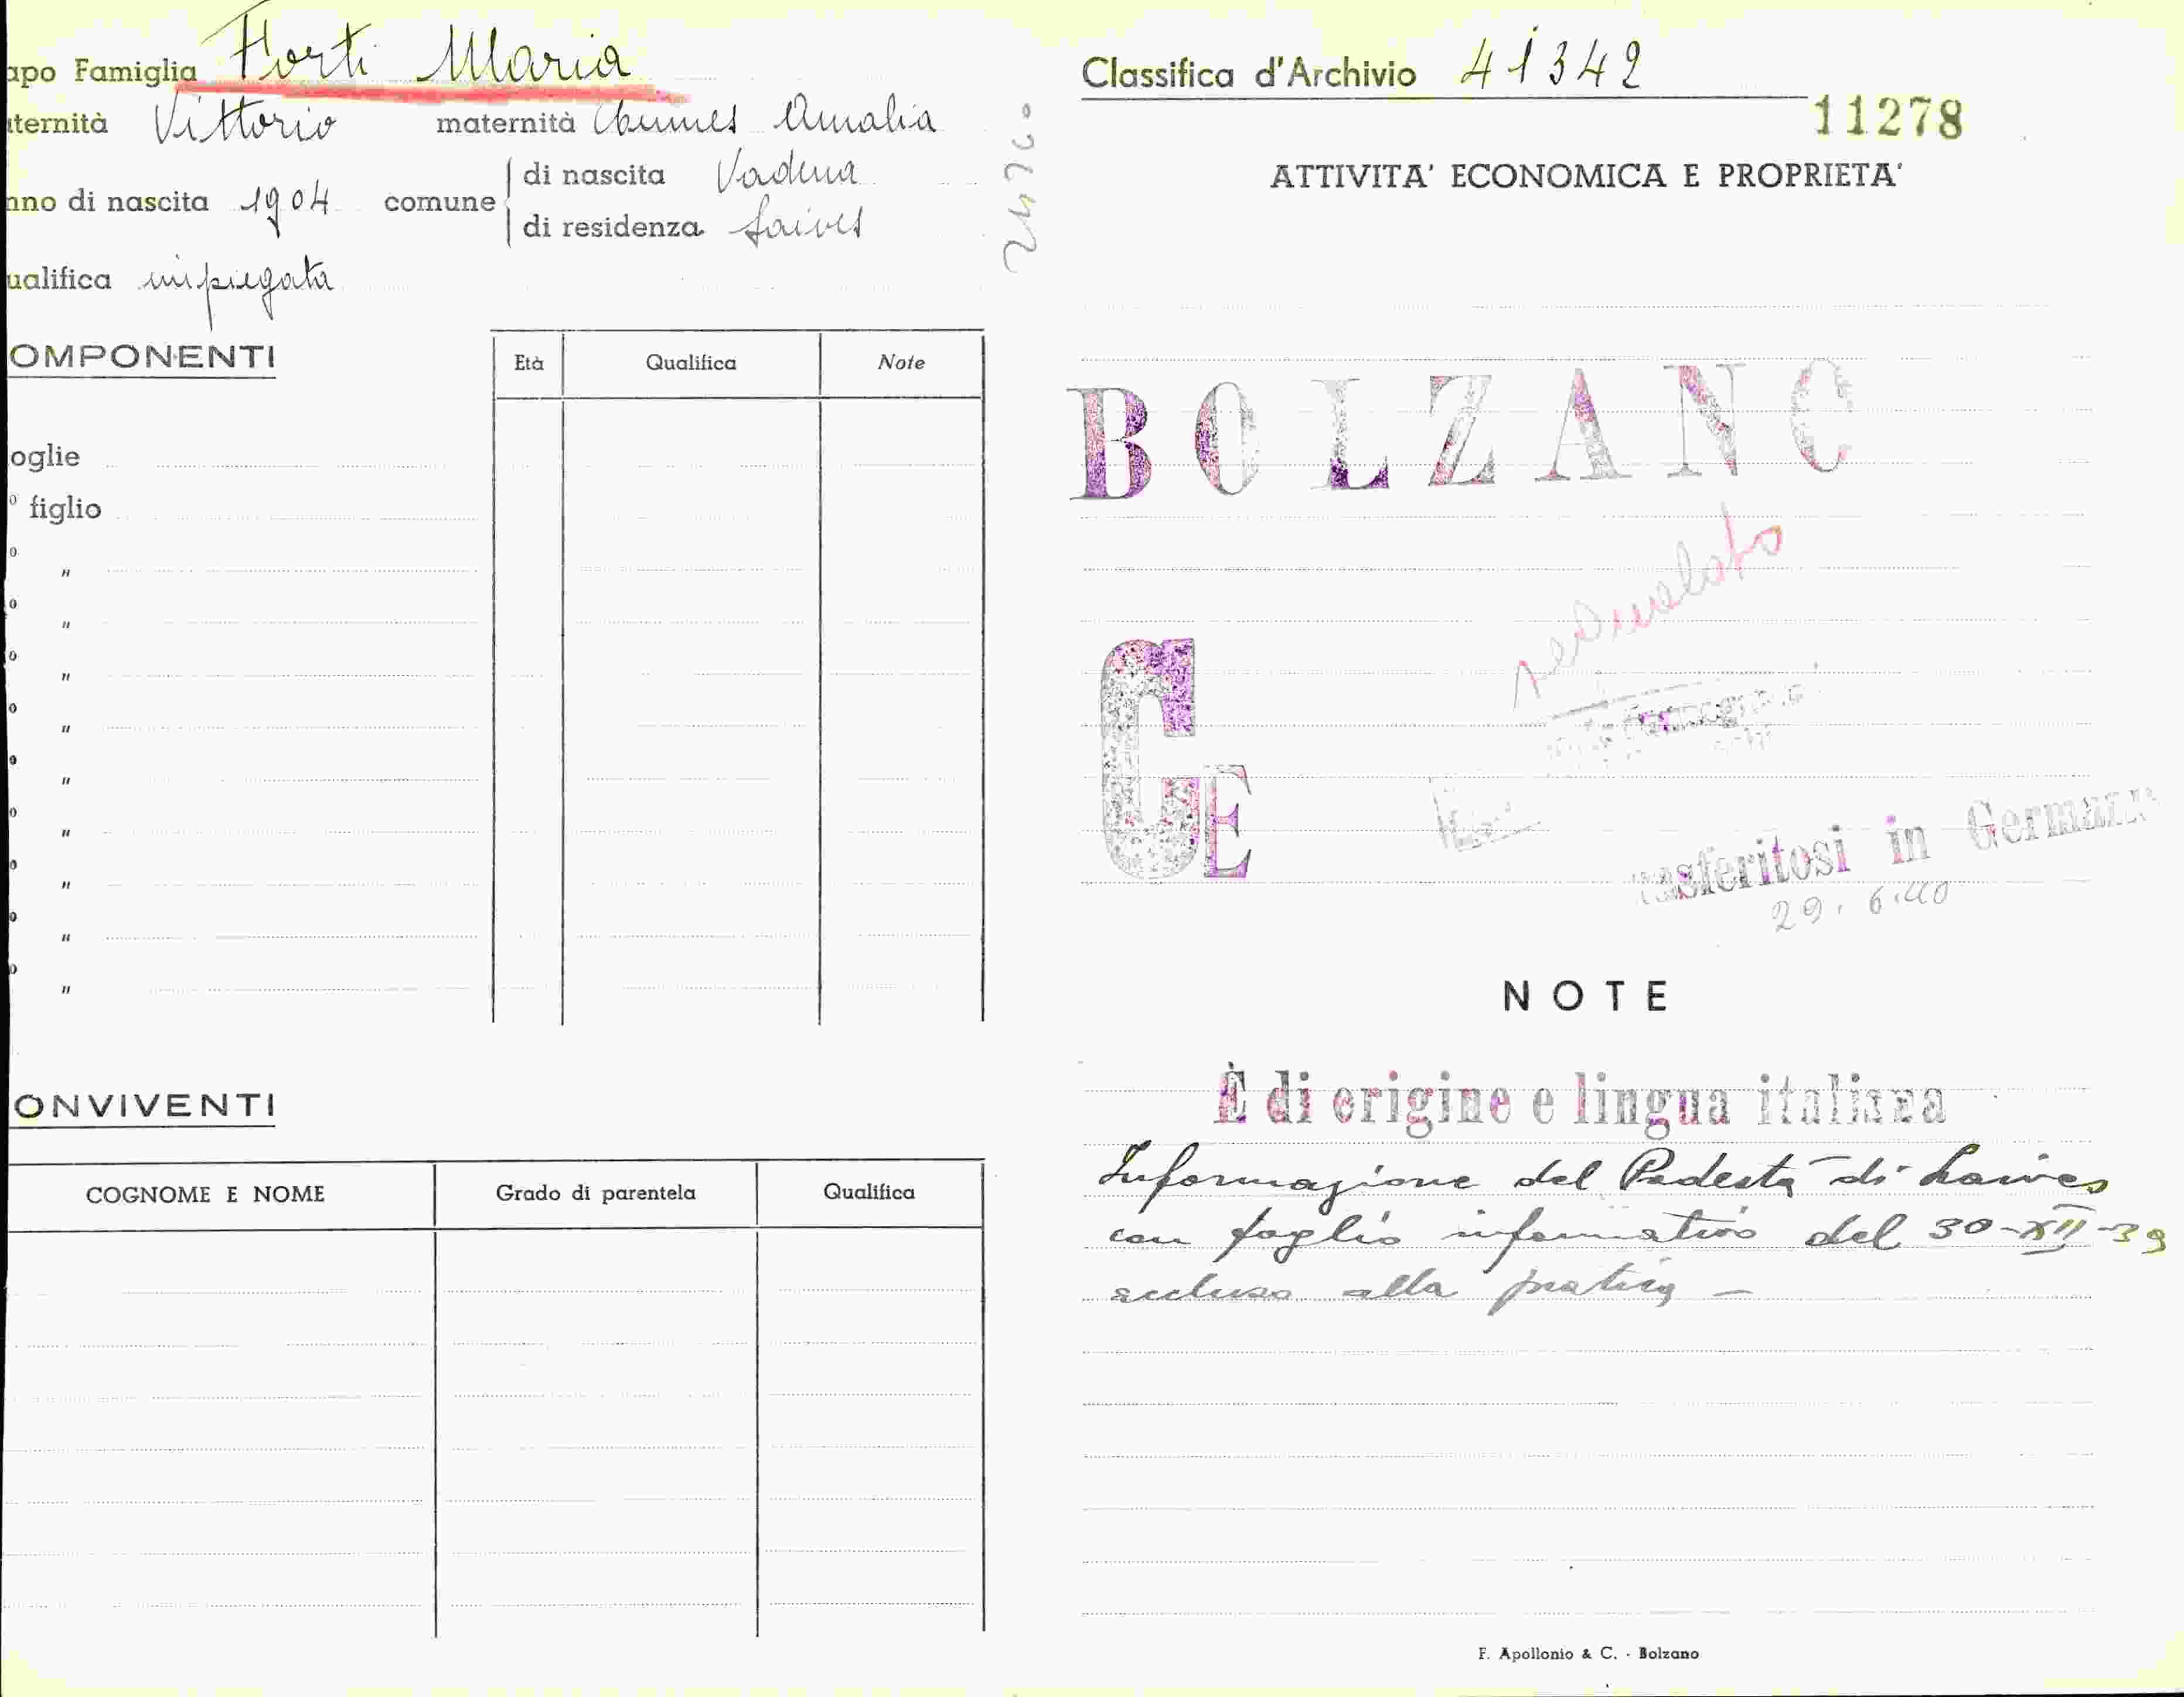 apo Famiglia Forti Maria
ternità Vittorio maternità Amalia
nno di nascita 1904 comune di nascita Vadena
di residenza Laives
ualifica impiegata
OMPONENTI
Età Qualifica Note
oglie
o figlio
o "
o "
o "
o "
o "
o "
o "
o "
o "
ONVIVENTI
COGNOME E NOME Grado di parentela Qualifica
Classifica d'Archivio 41342
11278
ATTIVITA' ECONOMICA E PROPRIETA'
BOLZANO
GE
rasferitosi in Germania
29.6.40
NOTE
È di origine e lingua italiana
Informazione del Podestà di Laives
con foglio informativo del 30-XII-39
accluso alla pratica -
F. Apollonio & C. - Bolzano